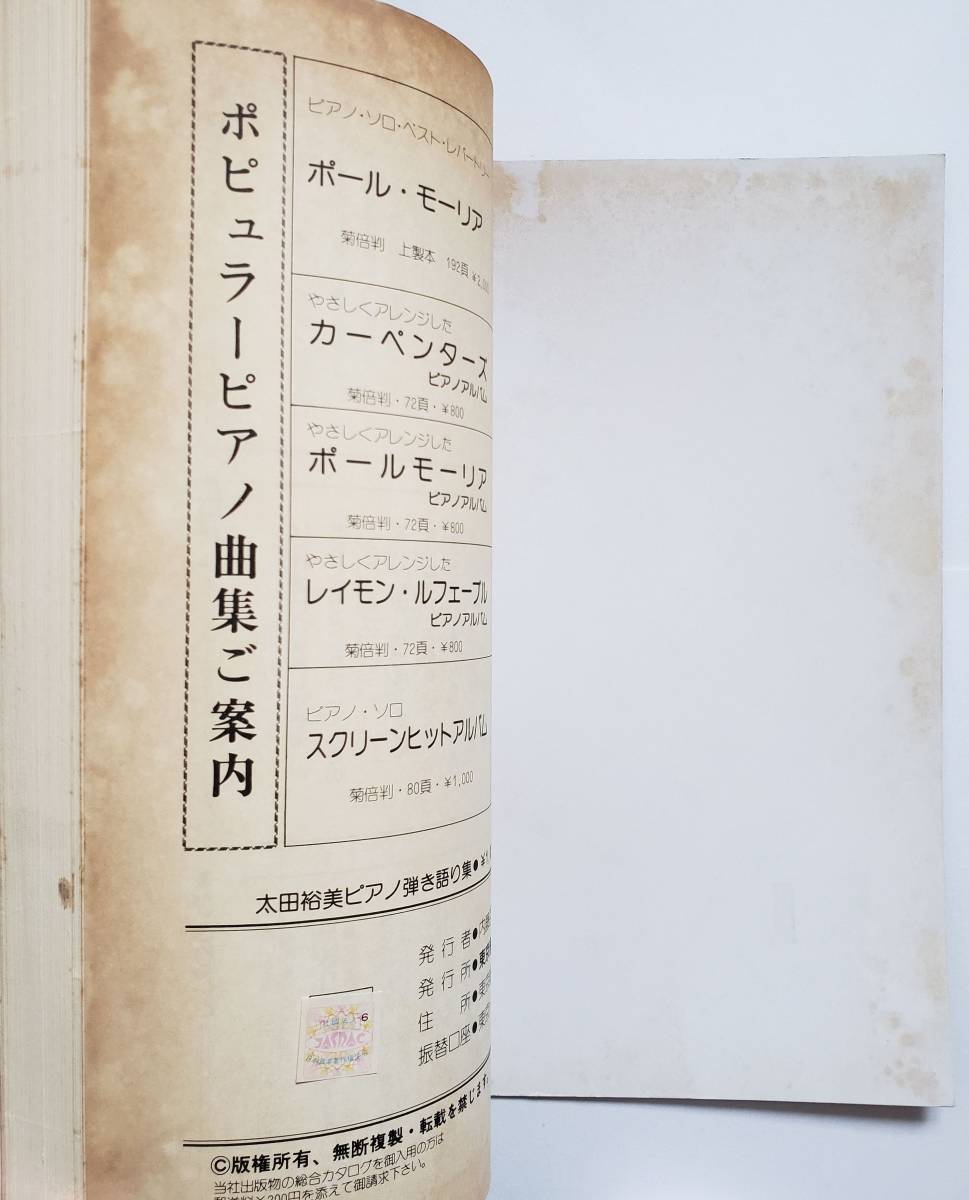 ポピュラーピアノ曲集ご案内
ピアノ・ソロ・ベスト・レパートリー
ポール・モーリア
菊倍判 上製本 192頁 ¥2,000
やさしくアレンジした
カーペンターズ
ピアノアルバム
菊倍判・72頁・¥800
やさしくアレンジした
ポールモーリア
ピアノアルバム
菊倍判・72頁・¥800
やさしくアレンジした
レイモン・ルフェーブル
ピアノアルバム
菊倍判・72頁・¥800
ピアノ・ソロ
スクリーンヒットアルバム
菊倍判・80頁・¥1,000
太田裕美ピアノ弾き語り集●¥1
発行者●内
発行所●東京
住所●東京
振替口座●東京
6
JASRAC
©版権所有、無断複製・転載を禁じます。
当社出版物の総合カタログを御入用の方は
郵送料¥200円を添えて御請求下さい。